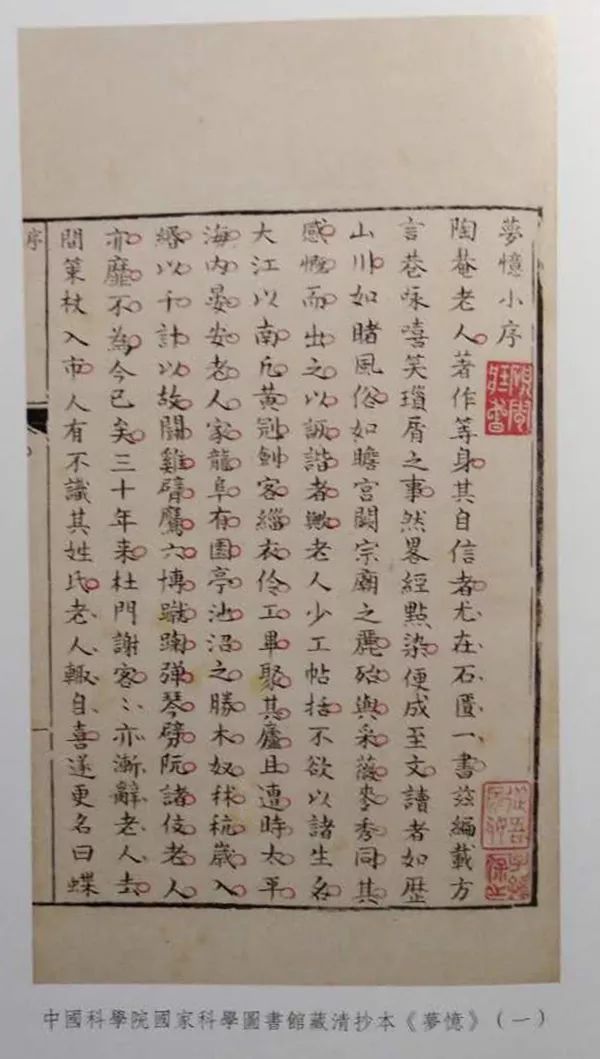 夢憶小序
陶菴老人著作等身其自信者尤在石匱一書玆編載方
言巷咏嘻笑瑣屑之事然畧經點染便成至文讀者如歷
山川如睹風俗如瞻宮闕宗廟之麗殆與采薇麥秀同其
感慨而出之以詼諧者歟老人少工帖括不欲以諸生名
大江以南凡黃冠劍客緇衣伶工畢聚其廬且遭時太平
海內晏安老人家龍阜有園亭池沼之勝木奴秫秔歲入
緡以千計以故鬭雞臂鷹六博蹴踘彈琴劈阮諸伎老人
亦靡不為今已矣三十年来杜門謝客〻亦漸辭老人去
間策杖入市人有不識其姓氏老人輒自喜遂更名曰蝶
序
一
中國科學院國家科學圖書館藏清抄本《夢憶》（一）